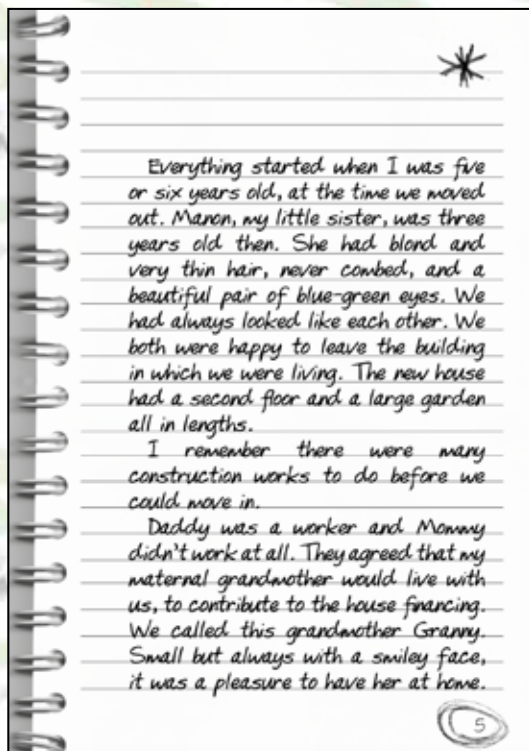 Everything started when I was five
or six years old, at the time we moved
out. Manon, my little sister, was three
years old then. She had blond and
very thin hair, never combed, and a
beautiful pair of blue-green eyes. We
had always looked like each other. We
both were happy to leave the building
in which we were living. The new house
had a second floor and a large garden
all in lengths.
I remember there were many
construction works to do before we
could move in.
Daddy was a worker and Mommy
didn't work at all. They agreed that my
maternal grandmother would live with
us, to contribute to the house financing.
We called this grandmother Granny.
Small but always with a smiley face,
it was a pleasure to have her at home.
5